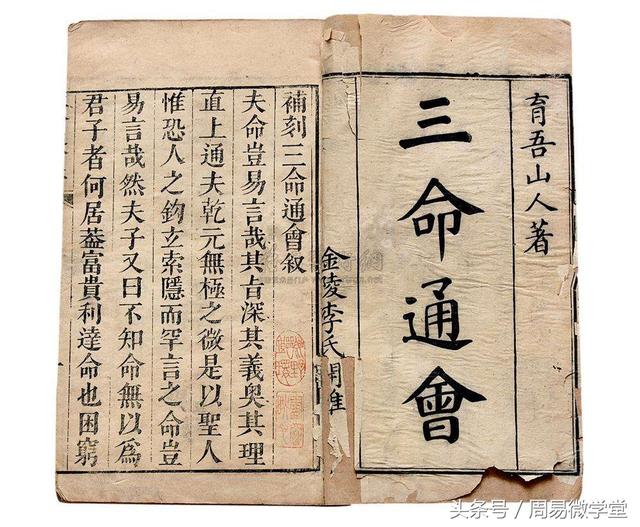 育吾山人著
三命通會
金陵李氏
補刻三命通會叙
夫命豈易言哉其旨深其義奥其理
直上通夫乾元無極之微是以聖人
惟恐人之鈎玄索隱而罕言之命豈
易言哉然夫子又曰不知命無以為
君子者何居葢富貴利達命也困窮
头条号／周易微学堂